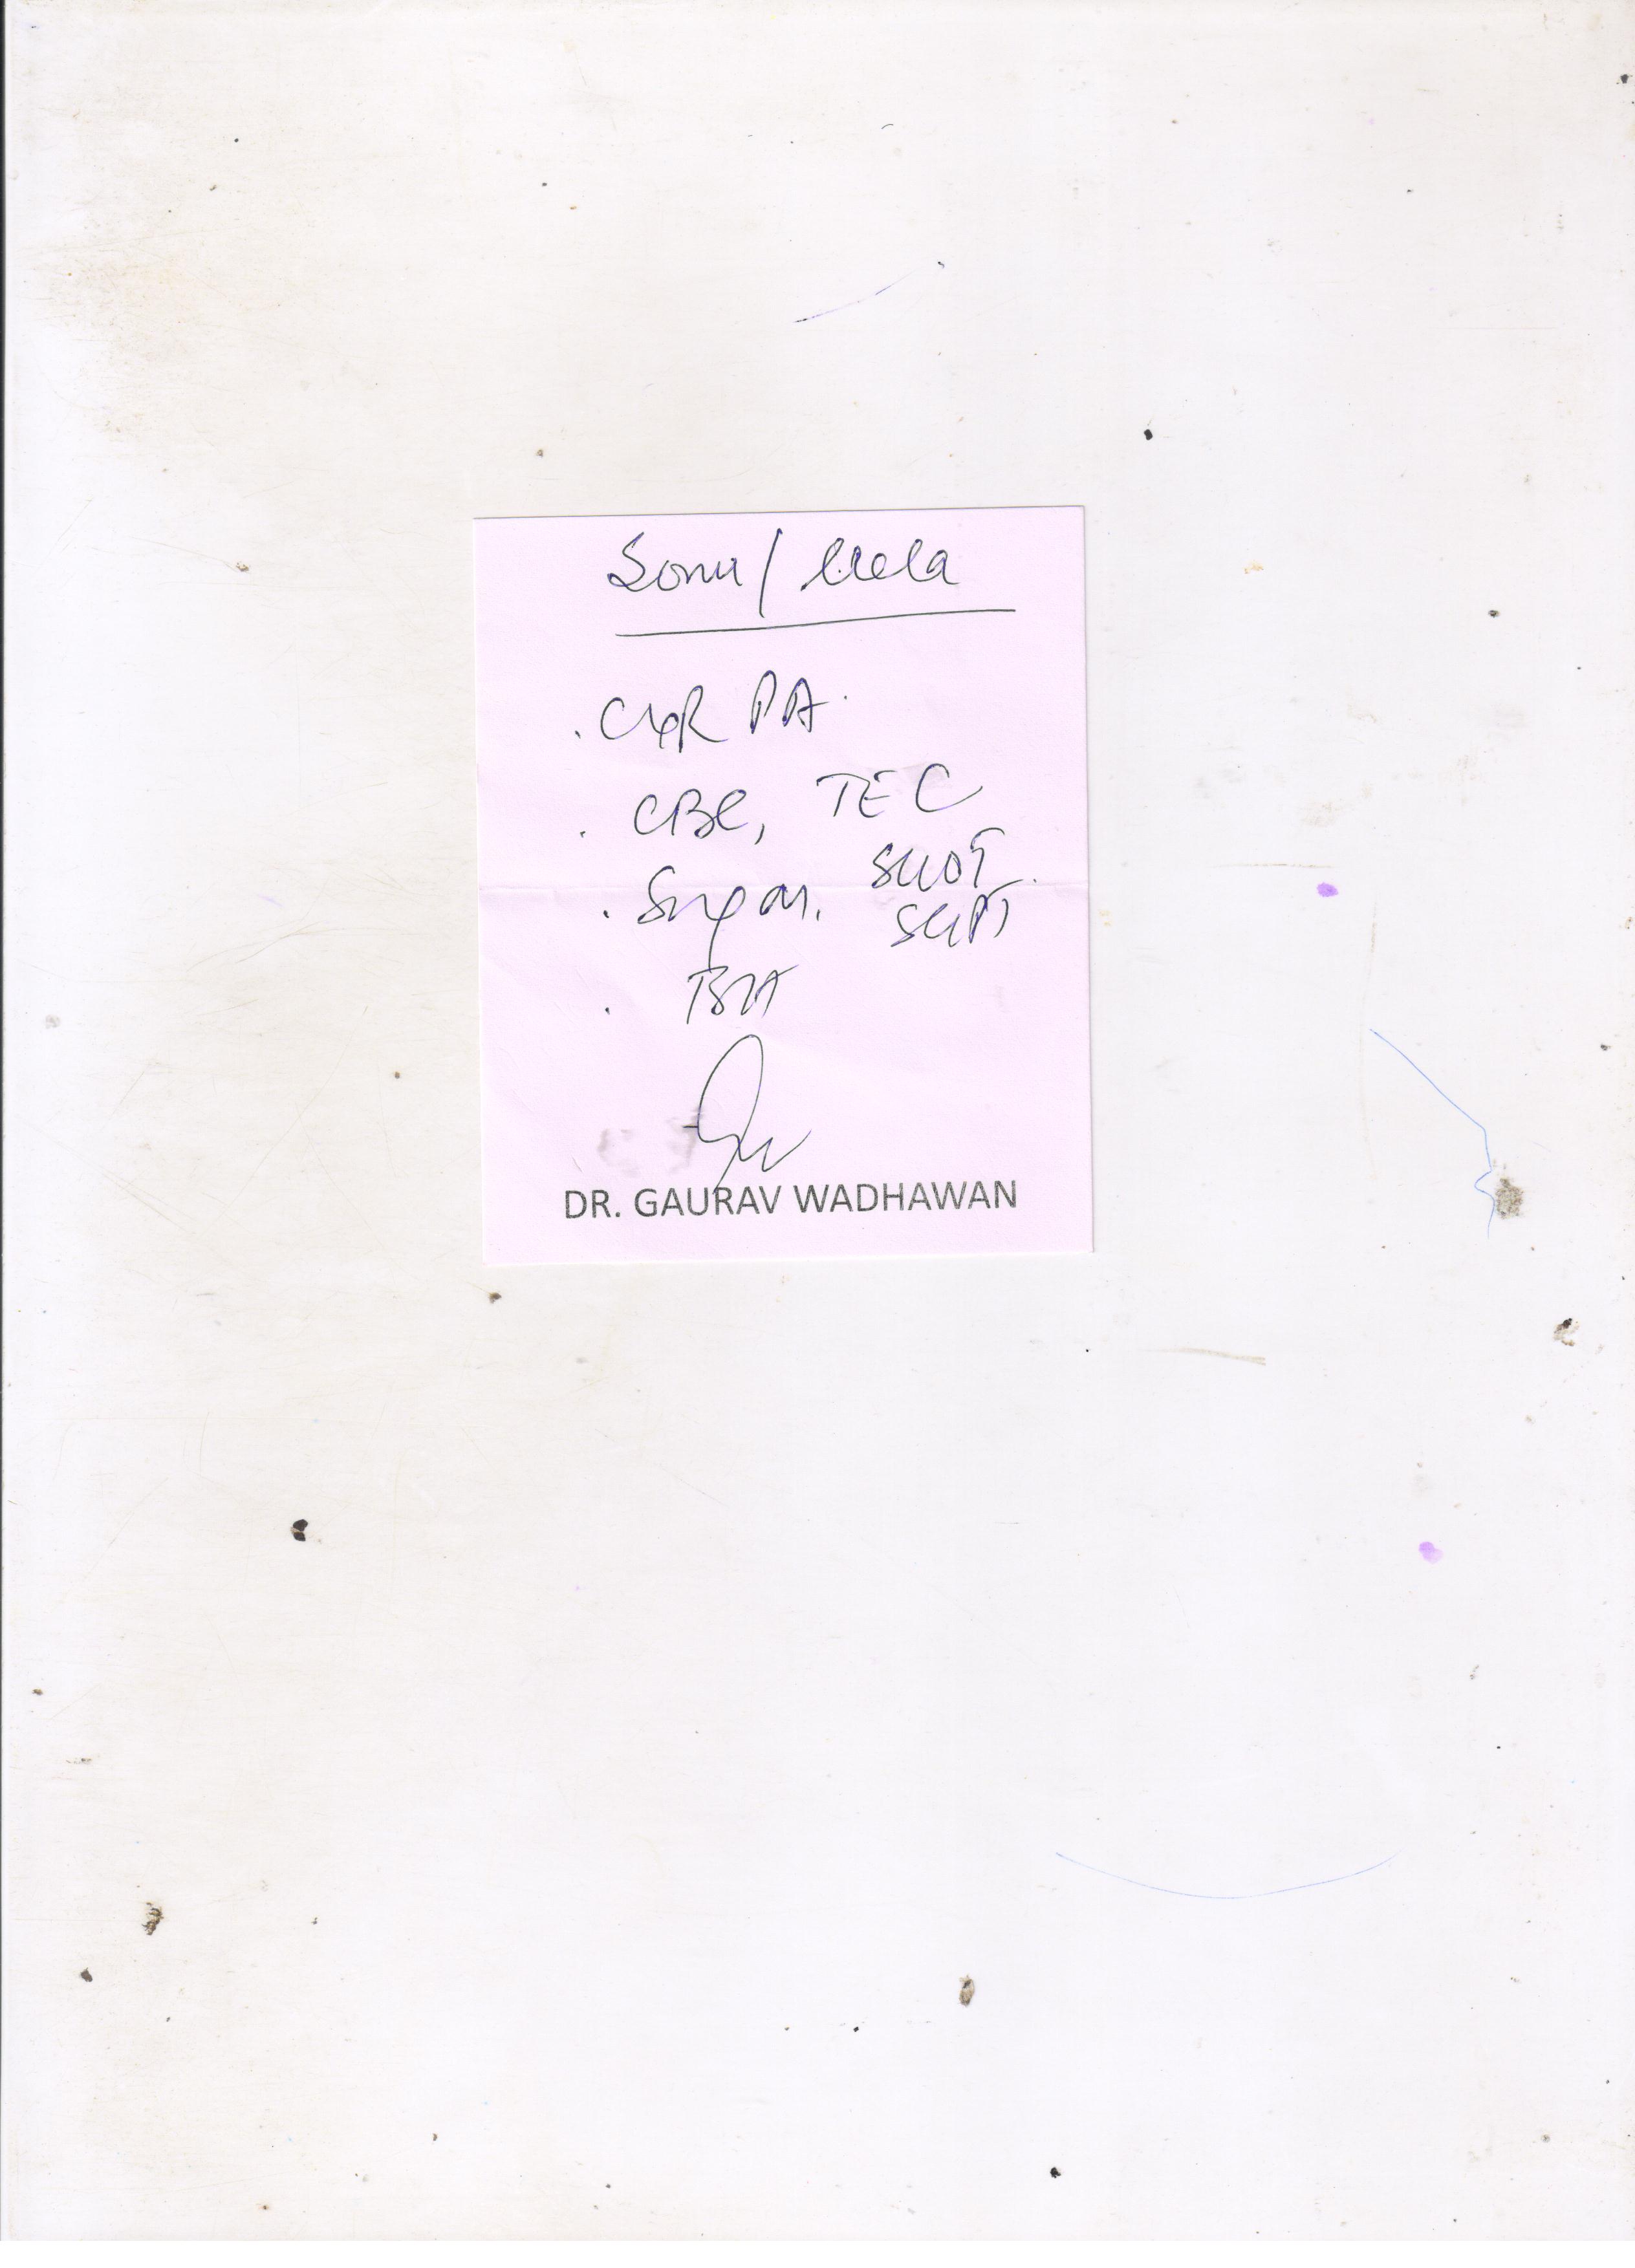 Sonu / Leela
. CXR PA.
. CBC, TEC
. Sugar. SGOT.
SGPT
. TSH
DR. GAURAV WADHAWAN